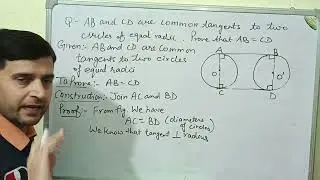 Q:- AB and CD are common tangents to two
circles of equal radii. Prove that AB = CD
Given:- AB and CD are common
tangents to two circles
of equal radii
To Prove:- AB = CD
Construction:- Join AC and BD
Proof:- From fig. We have
AC = BD (diameters of circles)
We know that tangent ⊥ radius
A B
O O'
C D